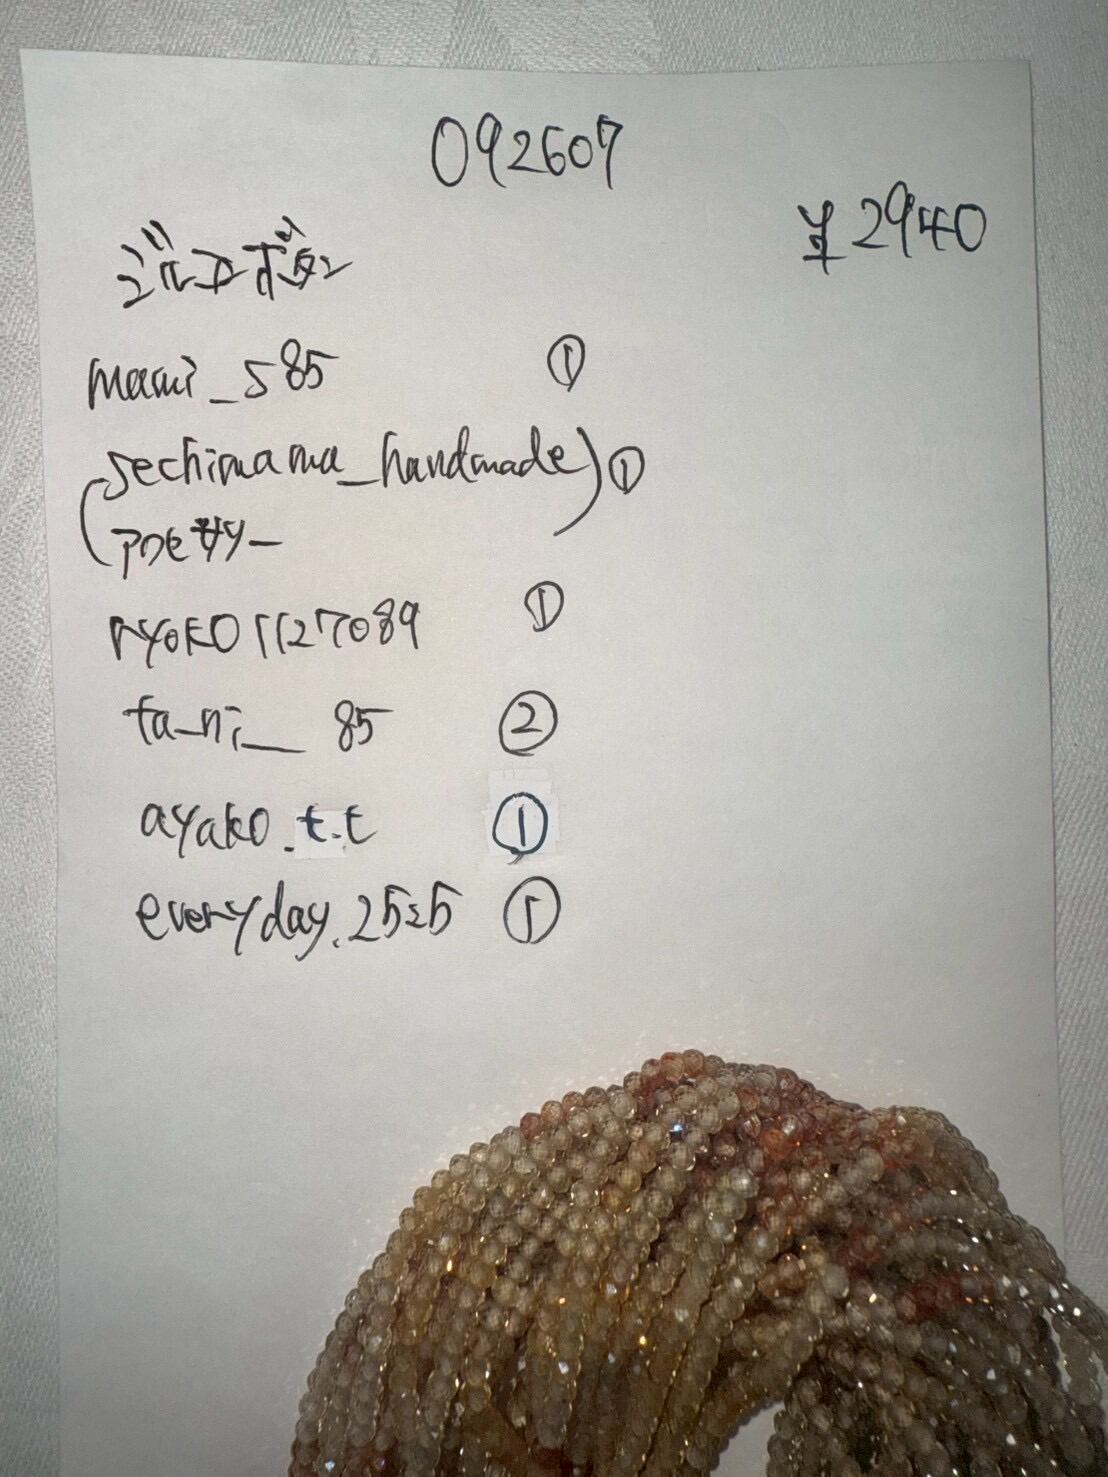 092607
¥2940
mami_s85 ①
(sechimama_handmade) ①
ryoko1127089 ①
ta_ni__85 ②
ayako.t.t ①
everyday.2525 ①